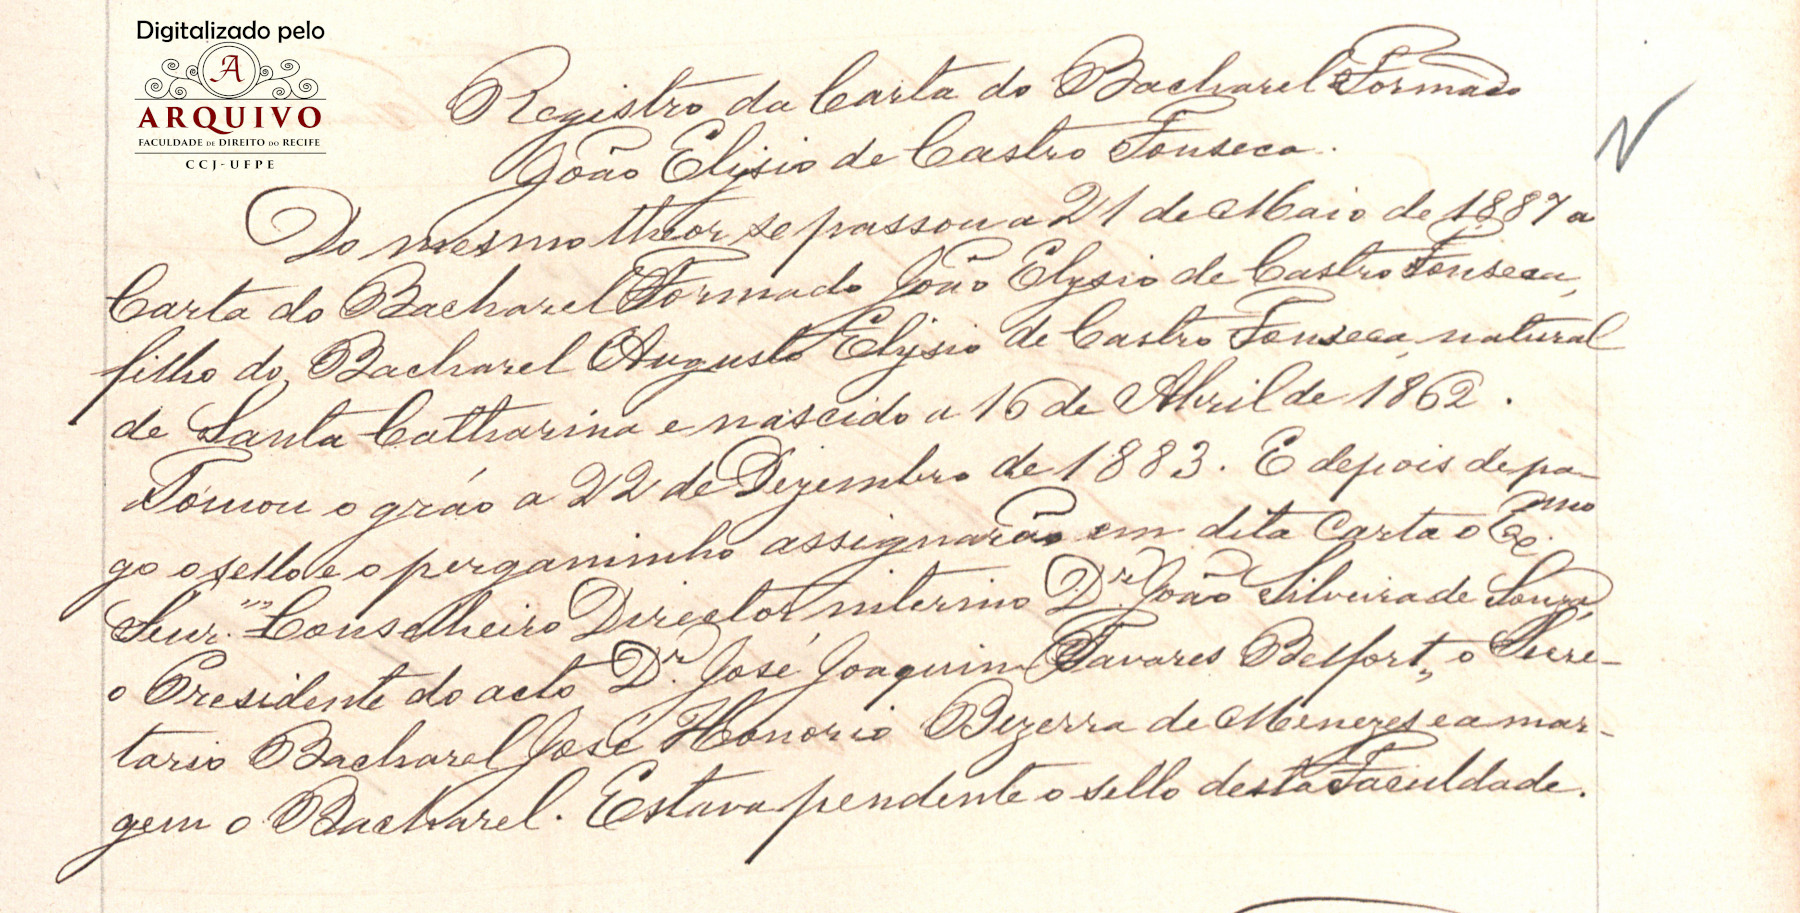 Digitalizado pelo
A
ARQUIVO
FACULDADE DE DIREITO DO RECIFE
CCJ-UFPE
Registro da Carta do Bacharel Formado
João Elysio de Castro Fonseca.
Do mesmo theor se passou a 21 de Maio de 1887 a
Carta do Bacharel Formado João Elysio de Castro Fonseca,
filho do Bacharel Augusto Elysio de Castro Fonseca, natural
de Santa Catharina e nascido a 16 de Abril de 1862.
Tomou o gráo a 22 de Dezembro de 1883. E depois de pa-
go o sello e o pergaminho assignarão em dita Carta o Exmo.
Senr. Conselheiro Director, interino Dr. João Silveira de Souza,
o Presidente do acto Dr. José Joaquim Tavares Belfort, o Secre-
tario Bacharel José Honorio Bezerra de Menezes e a mar-
gem o Bacharel. Estava pendente o sello desta Faculdade.